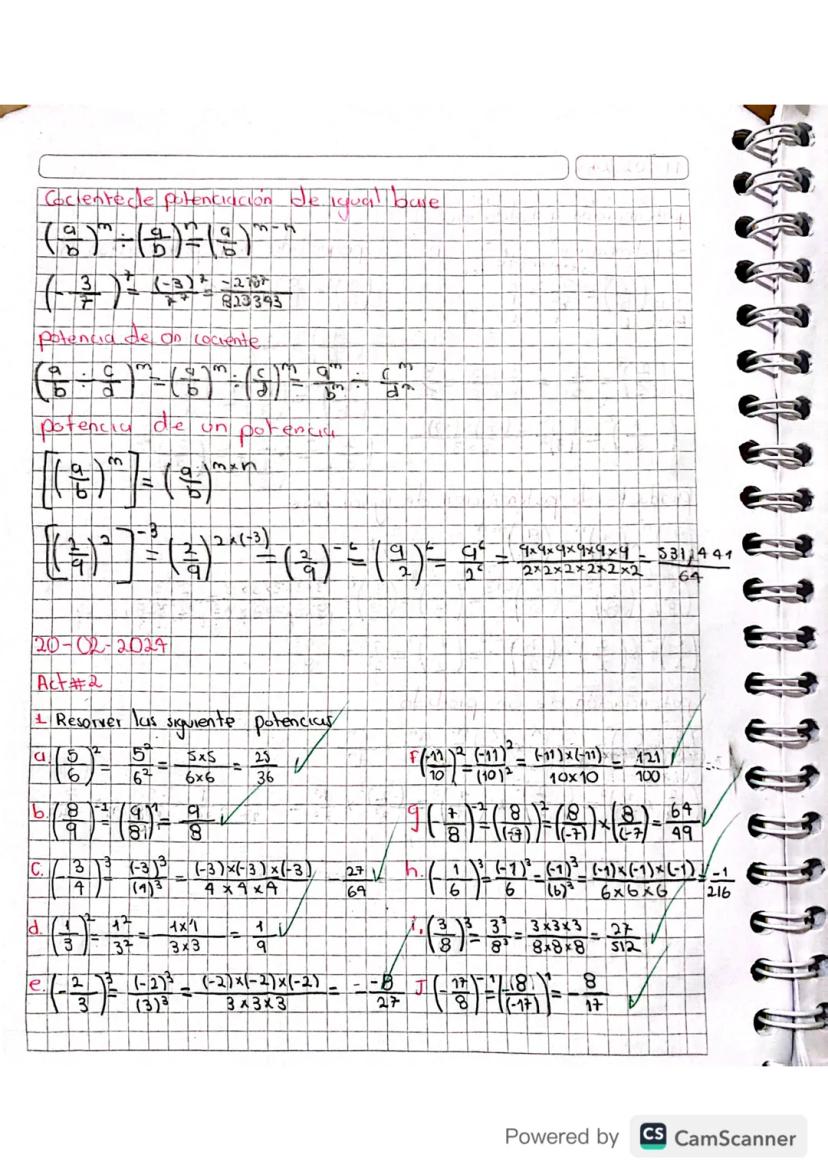 Cociente de potenciación de igual base
(a/b)^m ÷ (a/b)^n = (a/b)^m-n
(-3/7)^7 = (-3)^7/7^7 = -2187/823343
potencia de on cociente
(a/b ÷ c/d)^m = (a/b)^m ÷ (c/d)^m = a^m/b^m ÷ c^m/d^m
potencia de un potencia
[(a/b)^m] = (a/b)^m×n
[(2/9)^2]^-3 = (2/9)^2×(-3) = (2/9)^-6 = (9/2)^6 = 9^6/2^6 = 9×9×9×9×9×9/2×2×2×2×2×2 = 531,441/64
20-02-2024
Act #2
1 Resorver las siguiente potencias
a. (5/6)^2 = 5^2/6^2 = 5×5/6×6 = 25/36
b. (8/9)^-1 = (9/8)^1 = 9/8
C. (-3/4)^3 = (-3)^3/(4)^3 = (-3)×(-3)×(-3)/4×4×4 -27/64
d. (1/3)^2 = 1^2/3^2 = 1×1/3×3 = 1/9
e. (-2/3)^3 = (-2)^3/(3)^3 = (-2)×(-2)×(-2)/3×3×3 = --8/27
f (-11/10)^2 = (-11)^2/(10)^2 = (-11)×(-11)/10×10 = 121/100
g (-7/8)^-2 = (8/(-7))^2 = (8/(-7)×(8/(-7) = 64/49
h. (-1/6)^3 = (-1)^3/6 = (-1)^3/(6)^3 = (-1)×(-1)×(-1)/6×6×6 = -1/216
i. (3/8)^3 = 3^3/8^3 = 3×3×3/8×8×8 = 27/512
J (-17/8)^-1 = (8/(-17))^1 = -8/17
Powered by CS CamScanner